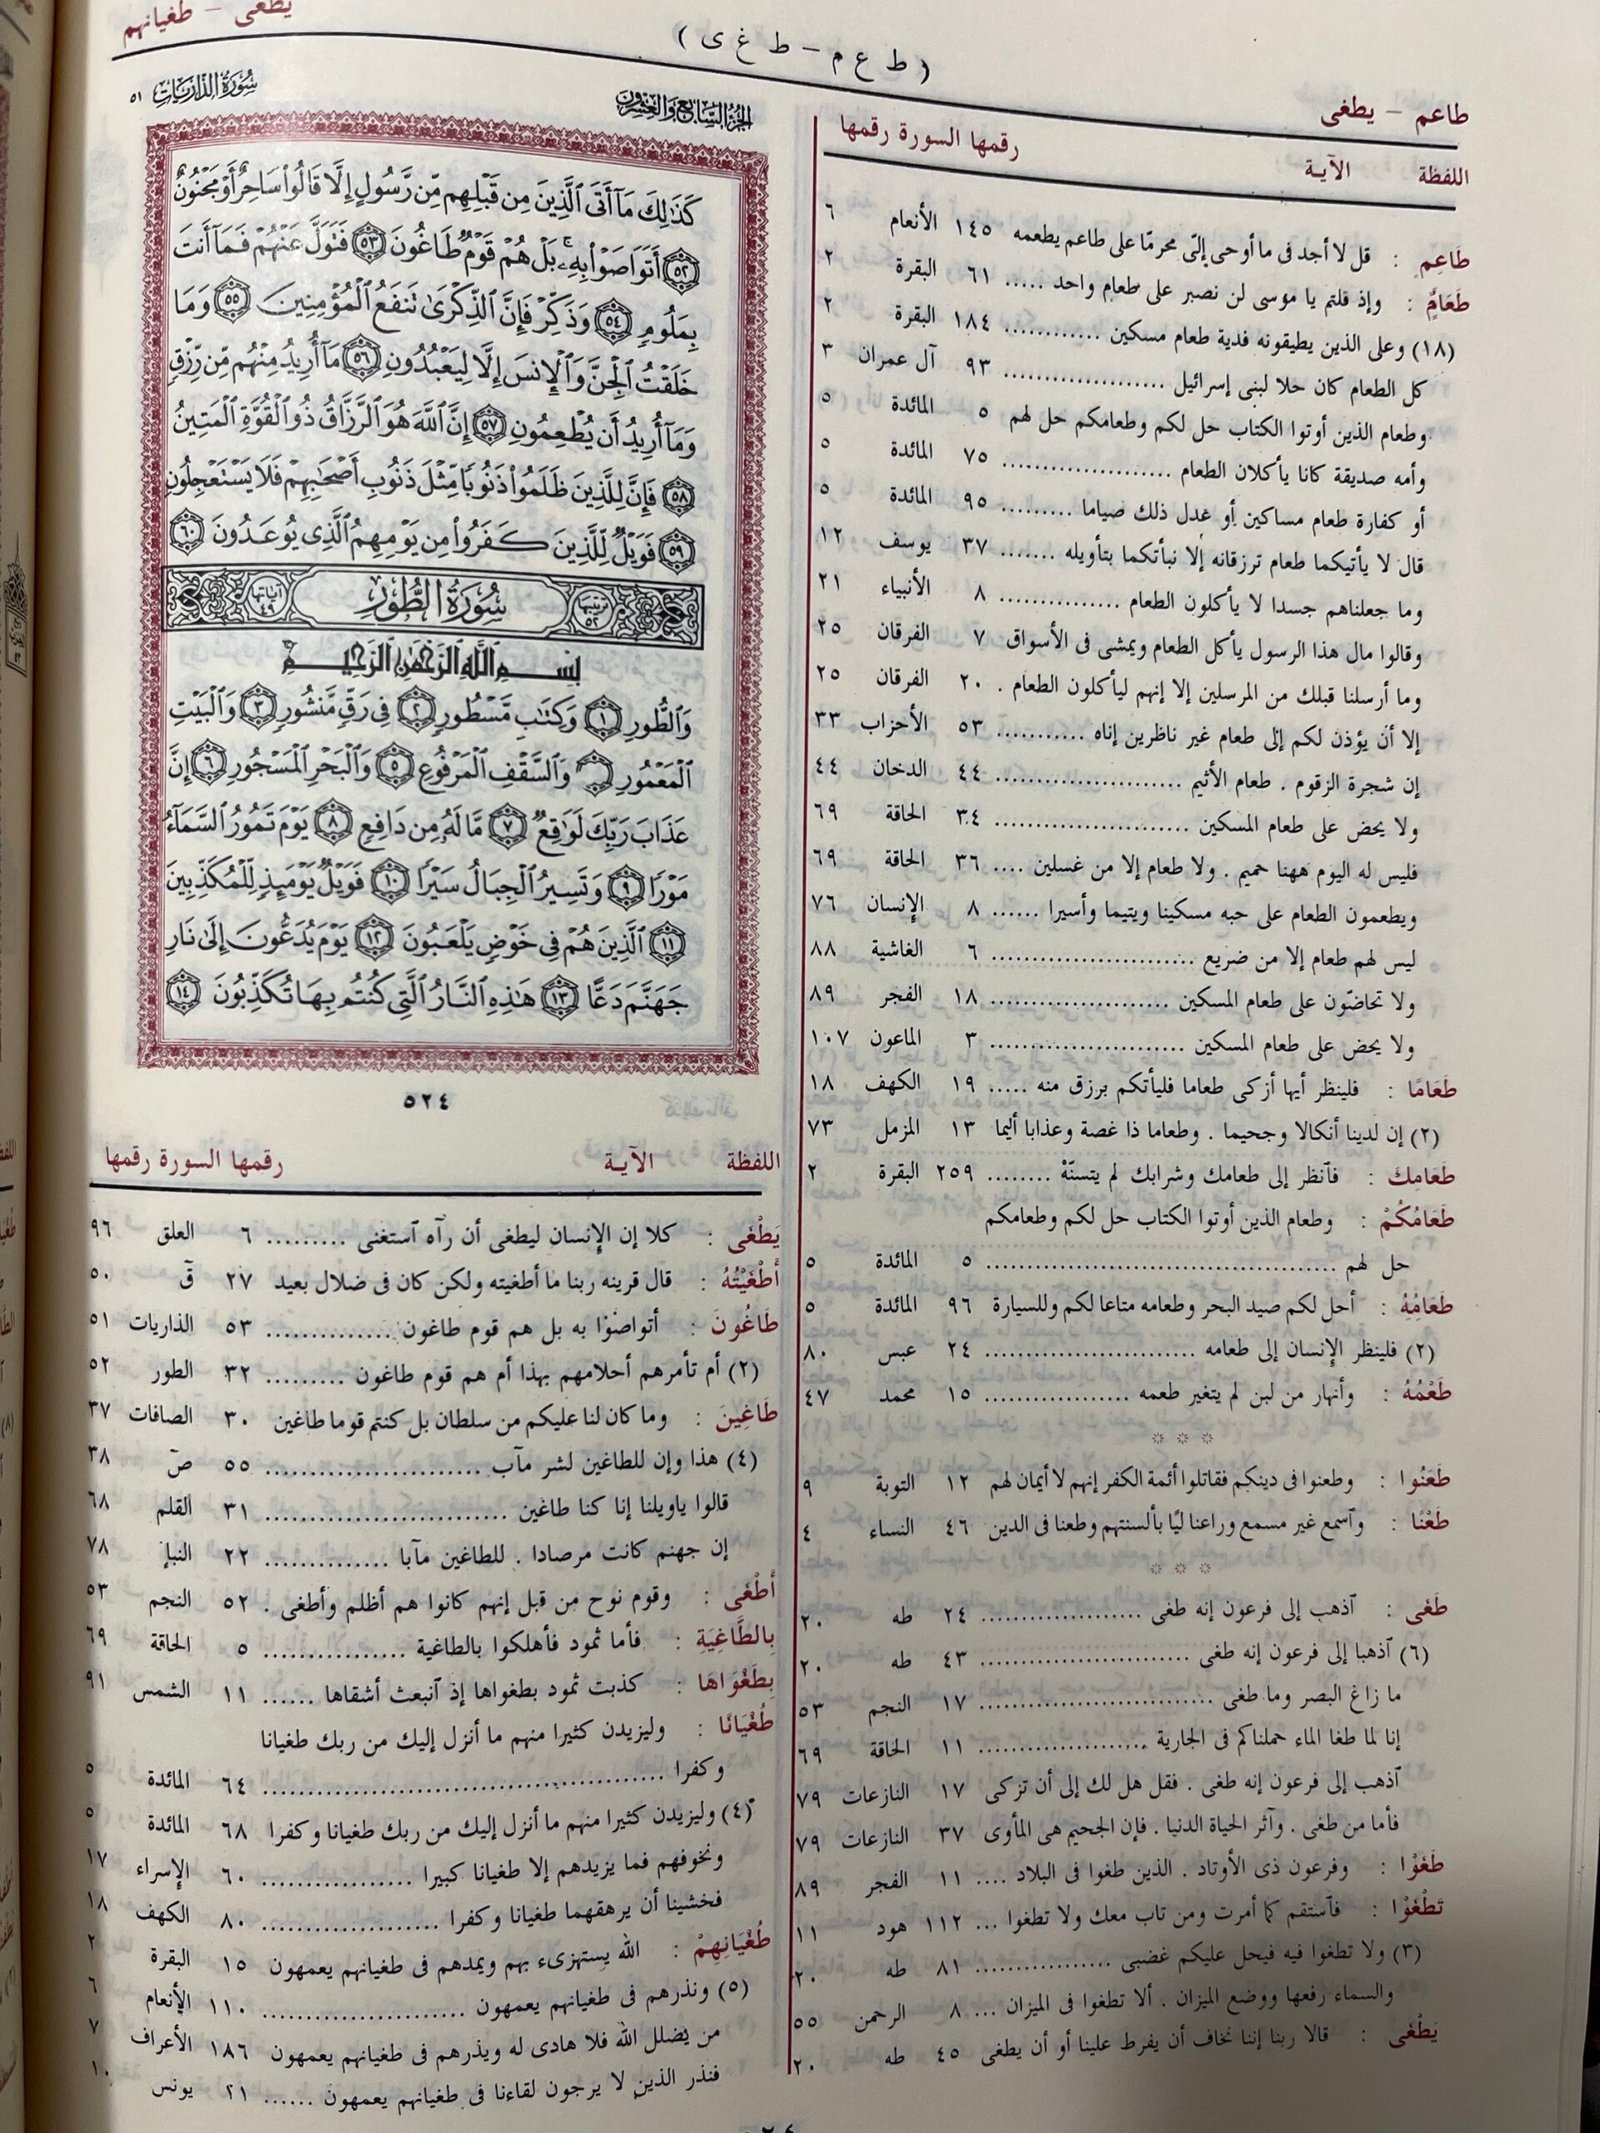 يطغى – طغيانهم
( ط ع م – ط غ ى )
طاعم – يطغى
اللفظة الآية رقمها السورة رقمها
طَاعِمٍ : قل لا أجد فى ما أوحى إلىّ محرمًا على طاعم يطعمه ١٤٥ الأنعام ٦
طَعَامٌ : وإذ قلتم يا موسى لن نصبر على طعام واحد ..... ٦١ البقرة ٢
(١٨) وعلى الذين يطيقونه فدية طعام مسكين ............ ١٨٤ البقرة ٢
كل الطعام كان حلا لبنى إسرائيل .................... ٩٣ آل عمران ٣
وطعام الذين أوتوا الكتاب حل لكم وطعامكم حل لهم ٥ المائدة ٥
وأمه صديقة كانا يأكلان الطعام ..................... ٧٥ المائدة ٥
أو كفارة طعام مساكين أو عدل ذلك صياما ......... ٩٥ المائدة ٥
قال لا يأتيكما طعام ترزقانه إلا نبأتكما بتأويله ....... ٣٧ يوسف ١٢
وما جعلناهم جسدا لا يأكلون الطعام ............... ٨ الأنبياء ٢١
وقالوا مال هذا الرسول يأكل الطعام ويمشى فى الأسواق ٧ الفرقان ٢٥
وما أرسلنا قبلك من المرسلين إلا إنهم ليأكلون الطعام . ٢٠ الفرقان ٢٥
إلا أن يؤذن لكم إلى طعام غير ناظرين إناه ........... ٥٣ الأحزاب ٣٣
إن شجرة الزقوم . طعام الأثيم ....................... ٤٤ الدخان ٤٤
ولا يحض على طعام المسكين ........................ ٣٤ الحاقة ٦٩
فليس له اليوم ههنا حميم . ولا طعام إلا من غسلين .... ٣٦ الحاقة ٦٩
ويطعمون الطعام على حبه مسكينا ويتيما وأسيرا ...... ٨ الإنسان ٧٦
ليس لهم طعام إلا من ضريع ......................... ٦ الغاشية ٨٨
ولا تحاضّون على طعام المسكين ...................... ١٨ الفجر ٨٩
ولا يحض على طعام المسكين ........................ ٣ الماعون ١٠٧
طَعَامًا : فلينظر أيها أزكى طعاما فليأتكم برزق منه ..... ١٩ الكهف ١٨
(٢) إن لدينا أنكالا وجحيما . وطعاما ذا غصة وعذابا أليما ١٣ المزمل ٧٣
طَعَامِكَ : فآنظر إلى طعامك وشرابك لم يتسنّهْ ........ ٢٥٩ البقرة ٢
طَعَامُكُمْ : وطعام الذين أوتوا الكتاب حل لكم وطعامكم
حل لهم ........................................... ٥ المائدة ٥
طَعَامُهُ : أحل لكم صيد البحر وطعامه متاعا لكم وللسيارة ٩٦ المائدة ٥
(٢) فلينظر الإنسان إلى طعامه .......................... ٢٤ عبس ٨٠
طَعْمُهُ : وأنهار من لبن لم يتغير طعمه .................. ١٥ محمد ٤٧
* * *
طَعَنُوا : وطعنوا فى دينكم فقاتلوا أئمة الكفر إنهم لا أيمان لهم ١٢ التوبة ٩
طَعْنًا : وآسمع غير مسمع وراعنا ليًا بألسنتهم وطعنا فى الدين ٤٦ النساء ٤
* * *
طَغَى : آذهب إلى فرعون إنه طغى .................... ٢٤ طه ٢٠
(٦) آذهبا إلى فرعون إنه طغى .......................... ٤٣ طه ٢٠
ما زاغ البصر وما طغى .............................. ١٧ النجم ٥٣
إنا لما طغا الماء حملناكم فى الجارية ..................... ١١ الحاقة ٦٩
آذهب إلى فرعون إنه طغى . فقل هل لك إلى أن تزكى ١٧ النازعات ٧٩
فأما من طغى . وآثر الحياة الدنيا . فإن الجحيم هى المأوى ٣٧ النازعات ٧٩
طَغَوْا : وفرعون ذى الأوتاد . الذين طغوا فى البلاد .... ١١ الفجر ٨٩
تَطْغَوْا : فآستقم كما أمرت ومن تاب معك ولا تطغوا ... ١١٢ هود ١١
(٣) ولا تطغوا فيه فيحل عليكم غضبى ................. ٨١ طه ٢٠
والسماء رفعها ووضع الميزان . ألا تطغوا فى الميزان ... ٨ الرحمن ٥٥
يَطْغَى : قالا ربنا إننا نخاف أن يفرط علينا أو أن يطغى ٤٥ طه ٢٠
الجزء السابع والعشرون
سورة الذاريات ٥١
كَذَٰلِكَ مَآ أَتَى ٱلَّذِينَ مِن قَبْلِهِم مِّن رَّسُولٍ إِلَّا قَالُوا۟ سَاحِرٌ أَوْ مَجْنُونٌ
٥٢ أَتَوَاصَوْا۟ بِهِۦ ۚ بَلْ هُمْ قَوْمٌ طَاغُونَ ٥٣ فَتَوَلَّ عَنْهُمْ فَمَآ أَنتَ
بِمَلُومٍ ٥٤ وَذَكِّرْ فَإِنَّ ٱلذِّكْرَىٰ تَنفَعُ ٱلْمُؤْمِنِينَ ٥٥ وَمَا
خَلَقْتُ ٱلْجِنَّ وَٱلْإِنسَ إِلَّا لِيَعْبُدُونِ ٥٦ مَآ أُرِيدُ مِنْهُم مِّن رِّزْقٍ
وَمَآ أُرِيدُ أَن يُطْعِمُونِ ٥٧ إِنَّ ٱللَّهَ هُوَ ٱلرَّزَّاقُ ذُو ٱلْقُوَّةِ ٱلْمَتِينُ
٥٨ فَإِنَّ لِلَّذِينَ ظَلَمُوا۟ ذَنُوبًا مِّثْلَ ذَنُوبِ أَصْحَٰبِهِمْ فَلَا يَسْتَعْجِلُونِ
٥٩ فَوَيْلٌ لِّلَّذِينَ كَفَرُوا۟ مِن يَوْمِهِمُ ٱلَّذِى يُوعَدُونَ ٦٠
ترتيبها ٥٢ سُورَةُ الطُّورِ آياتها ٤٩
بِسْمِ ٱللَّهِ ٱلرَّحْمَٰنِ ٱلرَّحِيمِ
وَٱلطُّورِ ١ وَكِتَٰبٍ مَّسْطُورٍ ٢ فِى رَقٍّ مَّنشُورٍ ٣ وَٱلْبَيْتِ
ٱلْمَعْمُورِ وَٱلسَّقْفِ ٱلْمَرْفُوعِ ٥ وَٱلْبَحْرِ ٱلْمَسْجُورِ ٦ إِنَّ
عَذَابَ رَبِّكَ لَوَٰقِعٌ ٧ مَّا لَهُۥ مِن دَافِعٍ ٨ يَوْمَ تَمُورُ ٱلسَّمَآءُ
مَوْرًا ٩ وَتَسِيرُ ٱلْجِبَالُ سَيْرًا ١٠ فَوَيْلٌ يَوْمَئِذٍ لِّلْمُكَذِّبِينَ
١١ ٱلَّذِينَ هُمْ فِى خَوْضٍ يَلْعَبُونَ ١٢ يَوْمَ يُدَعُّونَ إِلَىٰ نَارِ
جَهَنَّمَ دَعًّا ١٣ هَٰذِهِ ٱلنَّارُ ٱلَّتِى كُنتُم بِهَا تُكَذِّبُونَ ١٤
٥٢٤
اللفظة الآية رقمها السورة رقمها
يَطْغَى : كلا إن الإنسان ليطغى أن رآه آستغنى ......... ٦ العلق ٩٦
أَطْغَيْتُهُ : قال قرينه ربنا ما أطغيته ولكن كان فى ضلال بعيد ٢٧ قٓ ٥٠
طَاغُونَ : أتواصوْا به بل هم قوم طاغون ............... ٥٣ الذاريات ٥١
(٢) أم تأمرهم أحلامهم بهذا أم هم قوم طاغون ......... ٣٢ الطور ٥٢
طَاغِينَ : وما كان لنا عليكم من سلطان بل كنتم قوما طاغين ٣٠ الصافات ٣٧
(٤) هذا وإن للطاغين لشر مآب ......................... ٥٥ صٓ ٣٨
قالوا ياويلنا إنا كنا طاغين ............................ ٣١ القلم ٦٨
إن جهنم كانت مرصادا . للطاغين مآبا .............. ٢٢ النبإ ٧٨
أَطْغَى : وقوم نوح من قبل إنهم كانوا هم أظلم وأطغى . ٥٢ النجم ٥٣
بِالطَّاغِيَةِ : فأما ثمود فأهلكوا بالطاغية ................ ٥ الحاقة ٦٩
بِطَغْوَاهَا : كذبت ثمود بطغواها إذ آنبعث أشقاها ...... ١١ الشمس ٩١
طُغْيَانًا : وليزيدن كثيرا منهم ما أنزل إليك من ربك طغيانا
وكفرا .............................................. ٦٤ المائدة ٥
(٤) وليزيدن كثيرا منهم ما أنزل إليك من ربك طغيانا وكفرا ٦٨ المائدة ٥
ونخوفهم فما يزيدهم إلا طغيانا كبيرا ................. ٦٠ الإسراء ١٧
فخشينا أن يرهقهما طغيانا وكفرا ..................... ٨٠ الكهف ١٨
طُغْيَانِهِمْ : الله يستهزىء بهم ويمدهم فى طغيانهم يعمهون ١٥ البقرة ٢
(٥) ونذرهم فى طغيانهم يعمهون ....................... ١١٠ الأنعام ٦
من يضلل الله فلا هادى له ويذرهم فى طغيانهم يعمهون ١٨٦ الأعراف ٧
فنذر الذين لا يرجون لقاءنا فى طغيانهم يعمهون ...... ٢١ يونس ١٠